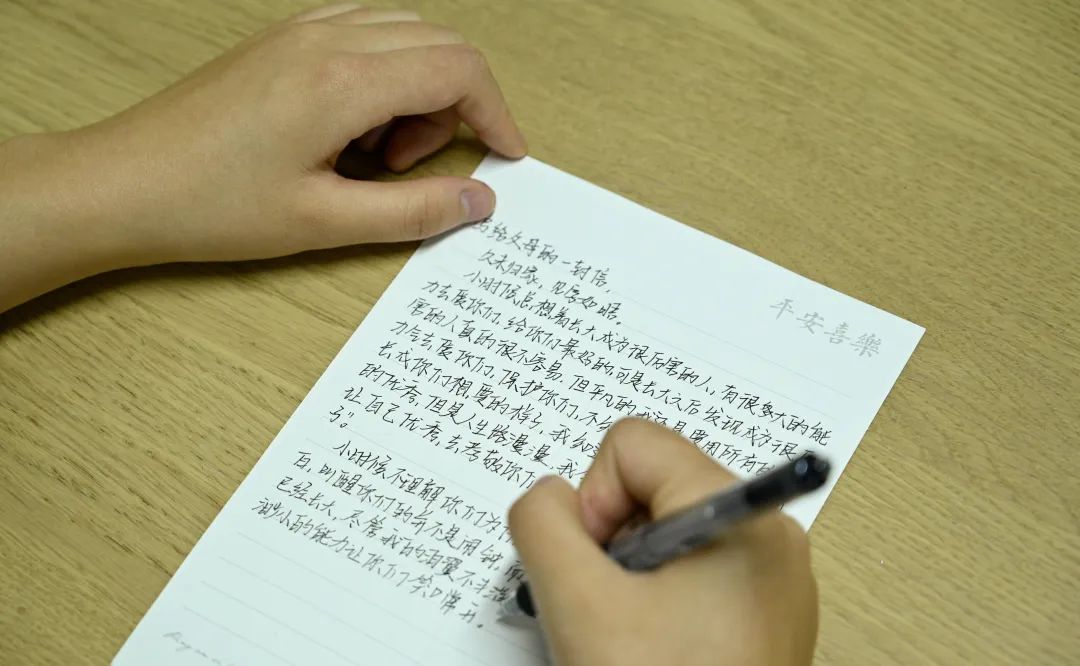 平安喜樂
写给父母的一封信,
久未归家,见字如晤。
小时候,总想着长大成为很厉害的人,有很多大的能
力去爱你们,给你们最好的,可是长大之后发现成为很
害的人真的很不容易.但平凡的我还是要用所有
力气去爱你们,保护你们,不
长成你们想要的样子,我
的优秀,但是人生路漫漫,我
让自己优秀,去孝敬你们
小时候不理解你们为
百,叫醒你们的并不是闹钟,而
已经长大,尽管我的羽翼不丰
小的能力让你们笑口常开。